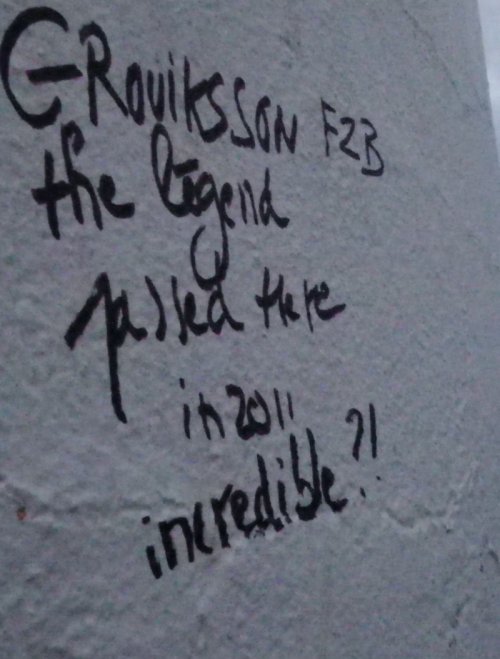 G-ROVIKSSON FZB
the legend
passed there
in 2011
incredible?!